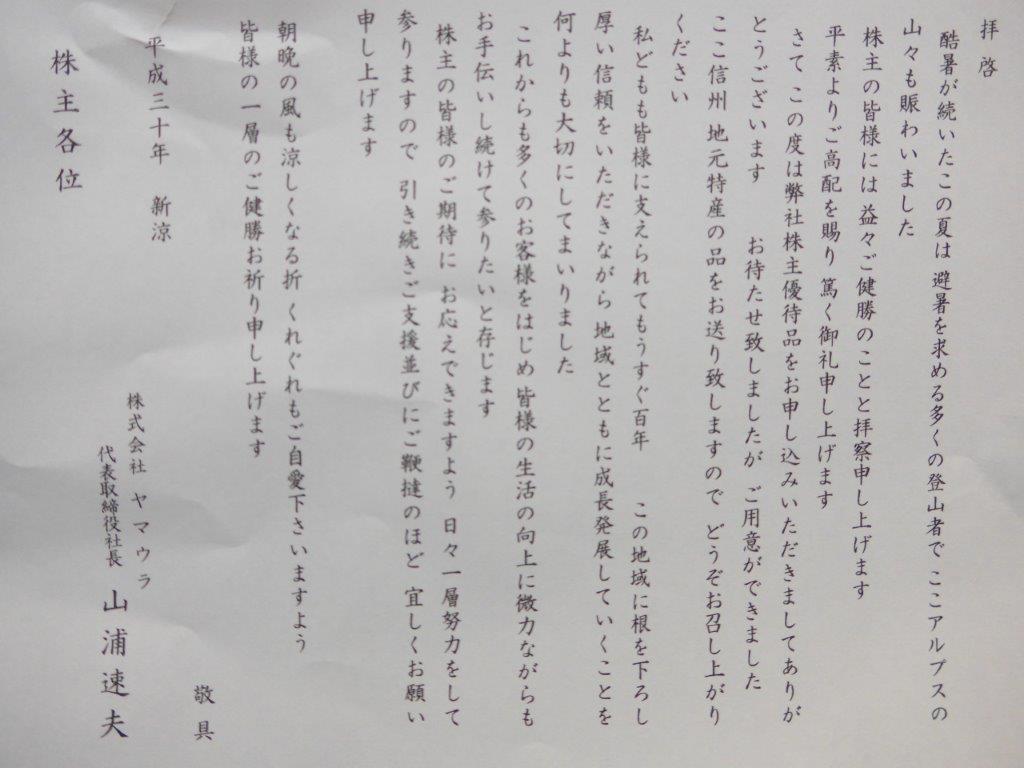 拝啓
酷暑が続いたこの夏は 避暑を求める多くの登山者で ここアルプスの
山々も賑わいました
株主の皆様には 益々ご健勝のことと拝察申し上げます
平素よりご高配を賜り 篤く御礼申し上げます
さて この度は弊社株主優待品をお申し込みいただきましてありが
とうございます お待たせ致しましたが ご用意ができました
ここ信州 地元特産の品をお送り致しますので どうぞお召し上がり
ください
私どもも皆様に支えられてもうすぐ百年 この地域に根を下ろし
厚い信頼をいただきながら 地域とともに成長発展していくことを
何よりも大切にしてまいりました
これからも多くのお客様をはじめ 皆様の生活の向上に微力ながらも
お手伝いし続けて参りたいと存じます
株主の皆様のご期待に お応えできますよう 日々一層努力をして
参りますので 引き続きご支援並びにご鞭撻のほど 宜しくお願い
申し上げます
朝晩の風も涼しくなる折 くれぐれもご自愛下さいますよう
皆様の一層のご健勝お祈り申し上げます
敬具
平成三十年 新涼
株式会社 ヤマウラ
代表取締役社長 山浦速夫
株主各位